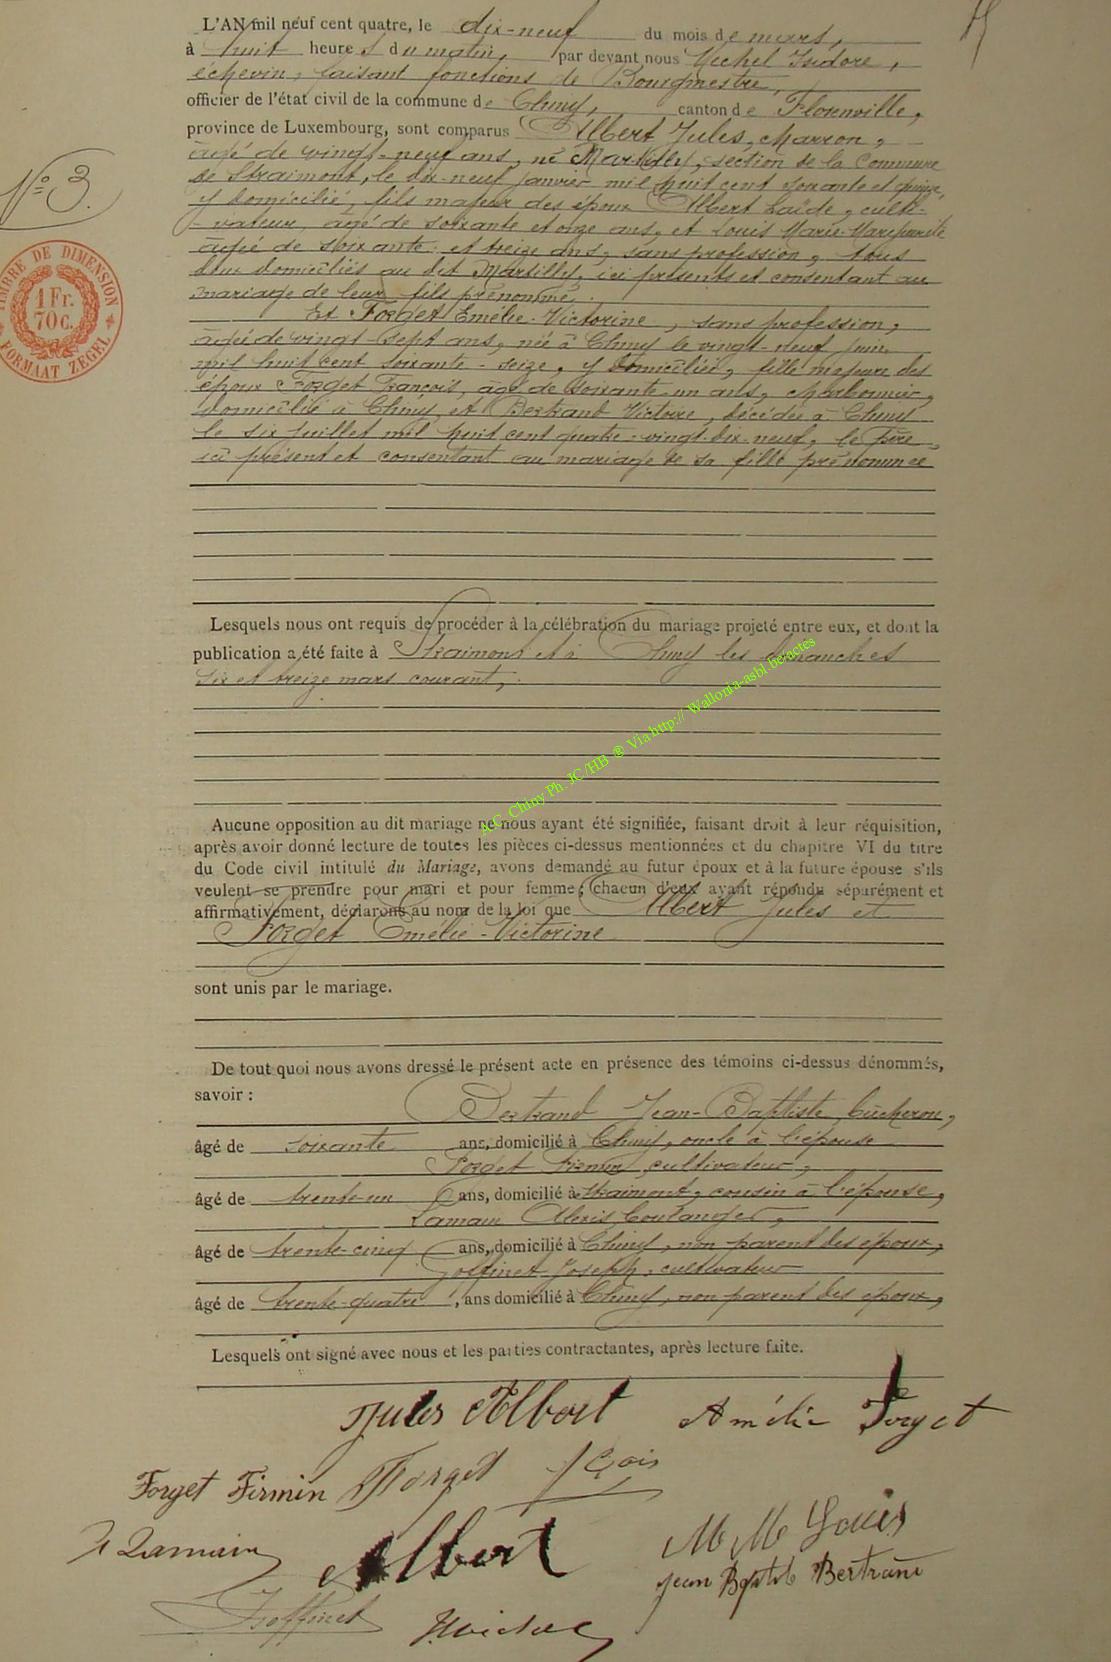 L'AN mil neuf cent quatre, le dix-neuf du mois de mars,
à huit heures du matin, par devant nous Michel Isidore,
échevin, faisant fonctions de Bourgmestre,
officier de l'état civil de la commune de Chiny, canton de Florenville,
province de Luxembourg, sont comparus Albert Jules, Marron,
âgé de vingt-neuf ans, né Martilly, section de la Commune
de Straimont, le dix-neuf janvier mil huit cent soixante et quinze,
y domicilié, fils majeur des époux Albert Laïde, culti-
vateur, âgé de soixante et onze ans, et Louis Marie-Marguerite
âgée de soixante et treize ans, sans profession, tous
deux domiciliés au dit Martilly, ici présents et consentant au
mariage de leur fils prénommé.
Et Forget Emélie-Victorine, sans profession,
âgée de vingt-sept ans, née à Chiny le vingt-neuf juin
mil huit cent soixante-seize, y domiciliée, fille majeure des
époux Forget François, âgé de soixante-un ans, charbonnier,
domicilié à Chiny, et Bertrand Victoire, décédée à Chiny
le six juillet mil huit cent quatre-vingt-dix-neuf, le père
ici présent et consentant au mariage de sa fille prénommée
N° 3.
TIMBRE DE DIMENSION
1 Fr.
70 c.
FORMAAT ZEGEL
Lesquels nous ont requis de procéder à la célébration du mariage projeté entre eux, et dont la
publication a été faite à Straimont et à Chiny les dimanches
six et treize mars courant,
A.C. Chiny Ph. JC/HB ® Via http:// Wallonia-asbl.be/actes
Aucune opposition au dit mariage ne nous ayant été signifiée, faisant droit à leur réquisition,
après avoir donné lecture de toutes les pièces ci-dessus mentionnées et du chapitre VI du titre
du Code civil intitulé du Mariage, avons demandé au futur époux et à la future épouse s'ils
veulent se prendre pour mari et pour femme; chacun d'eux ayant répondu séparément et
affirmativement, déclarons au nom de la loi que Albert Jules et
Forget Emélie-Victorine
sont unis par le mariage.
De tout quoi nous avons dressé le présent acte en présence des témoins ci-dessus dénommés,
savoir :
Bertrand Jean-Baptiste, bûcheron,
âgé de soixante ans, domicilié à Chiny, oncle à l'épouse
Forget Firmin, cultivateur,
âgé de trente-un ans, domicilié à Straimont, cousin à l'épouse,
Lamain Alexis, boulanger,
âgé de trente-cinq ans, domicilié à Chiny, non parent des époux,
Goffinet Joseph, cultivateur
âgé de trente-quatre, ans domicilié à Chiny, non parent des époux,
Lesquels ont signé avec nous et les parties contractantes, après lecture faite.
Jules Albert Amélie Forget
Forget Firmin Forget fçois
Lamain Albert M M Louis
Jean Baptiste Bertrand
Goffinet